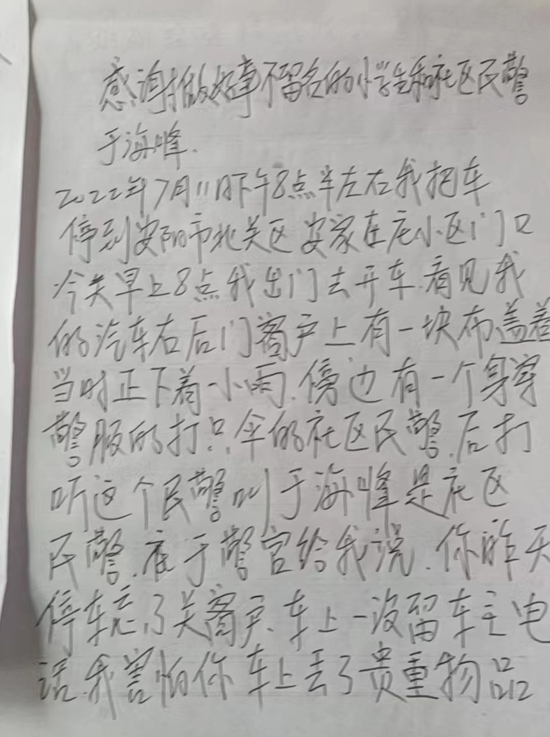 感谢做好事不留名的小学生和社区民警
于海峰.
2022年7月11日下午8点半左右我把车
停到安阳市北关区安家庄小区门口
今天早上8点我出门去开车.看见我
的汽车右后门窗户上有一块布盖着
当时正下着小雨.傍边有一个身穿
警服的打只伞的社区民警.后打
听这个民警叫于海峰是社区
民警.在于警官给我说.你昨天
停车忘了关窗户.车上一没留车主电
话.我害怕你车上丢了贵重物品